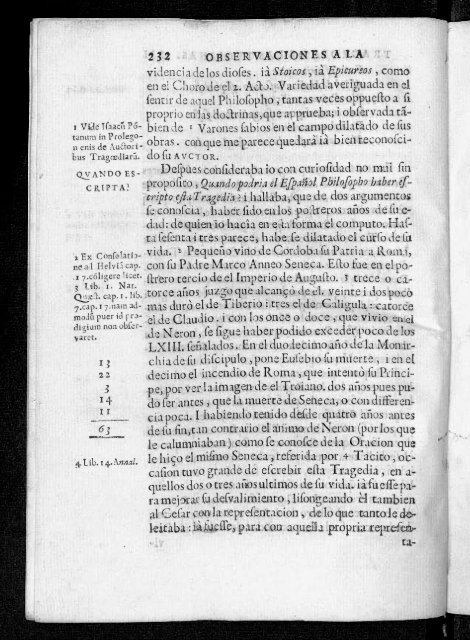 232 OBSERVACIONES A LA
videncia de los dioses. ià Stoicos, ià Epicureos, como
en el Choro de el 2. Acto. Variedad averiguada en el
sentir de aquel Philosopho, tantas veces oppuesto a si
proprio en las doctrinas, que aprueba; i observada tã-
bien de 1 Varones sabios en el campo dilatado de sus
obras. con que me parece quedarà ia bien reconosci-
do su AVCTOR.
Despues consideraba io con curiosidad no mal sin
proposito, Quando podria el Español Philosopho haber es-
cripto esta Tragedia: i hallaba, que de dos argumentos
se conoscia, haber sido en los postreros años de su e-
dad: de quien io hacia en esta forma el computo. Has-
ta sesenta i tres parece, haberse dilatado el curso de su
vida. 2 Pequeño vino de Cordoba su Patria a Roma,
con su Padre Marco Anneo Seneca. Esto fue en el po-
strero tercio de el Imperio de Augusto. 3 trece o ca-
torce años juzgo que alcançò de el. veinte i dos poco
mas durò el de Tiberio: tres el de Caligula: catorce
el de Claudio. i con los once o doce, que vivio en el
de Neron, se sigue haber podido exceder poco de los
LXIII. señalados. En el duodecimo año de la Monar-
chia de su discipulo, pone Eusebio su muerte, i en el
decimo el incendio de Roma, que intentò su Princi-
pe, por ver la imagen de el Troiano. dos años pues pu-
do ser antes, que la muerte de Seneca, o con differen-
cia poca. I habiendo tenido desde quatro años antes
de su fin, tan contrario el animo de Neron (por los que
le calumniaban) como se conosce de la Oracion que
le hiço el mismo Seneca, referida por 4 Tacito, oc-
casion tuvo grande de escrebir esta Tragedia, en a-
quellos dos o tres años ultimos de su vida. ià fuesse pa-
ra mejorar su desvalimiento, lisongeando èl tambien
al Cesar con la representacion, de lo que tanto le de-
leitaba: ià fuesse, para con aquella propria represen-
ta-
1 Vide Isaacũ Põ-
tanum in Prolego-
menis de Auctori-
bus Tragœdiarũ.
QVANDO ES-
CRIPTA?
2 Ex Consolatio-
ne ad Helviã cap.
17. colligere licet.
3 Lib. 1. Nat.
Quæst. cap. 1. lib.
7. cap. 17. nam ad-
modũ puer id pro-
digium non obser-
varet.
13
22
3
14
11
63
4 Lib. 14. Annal.